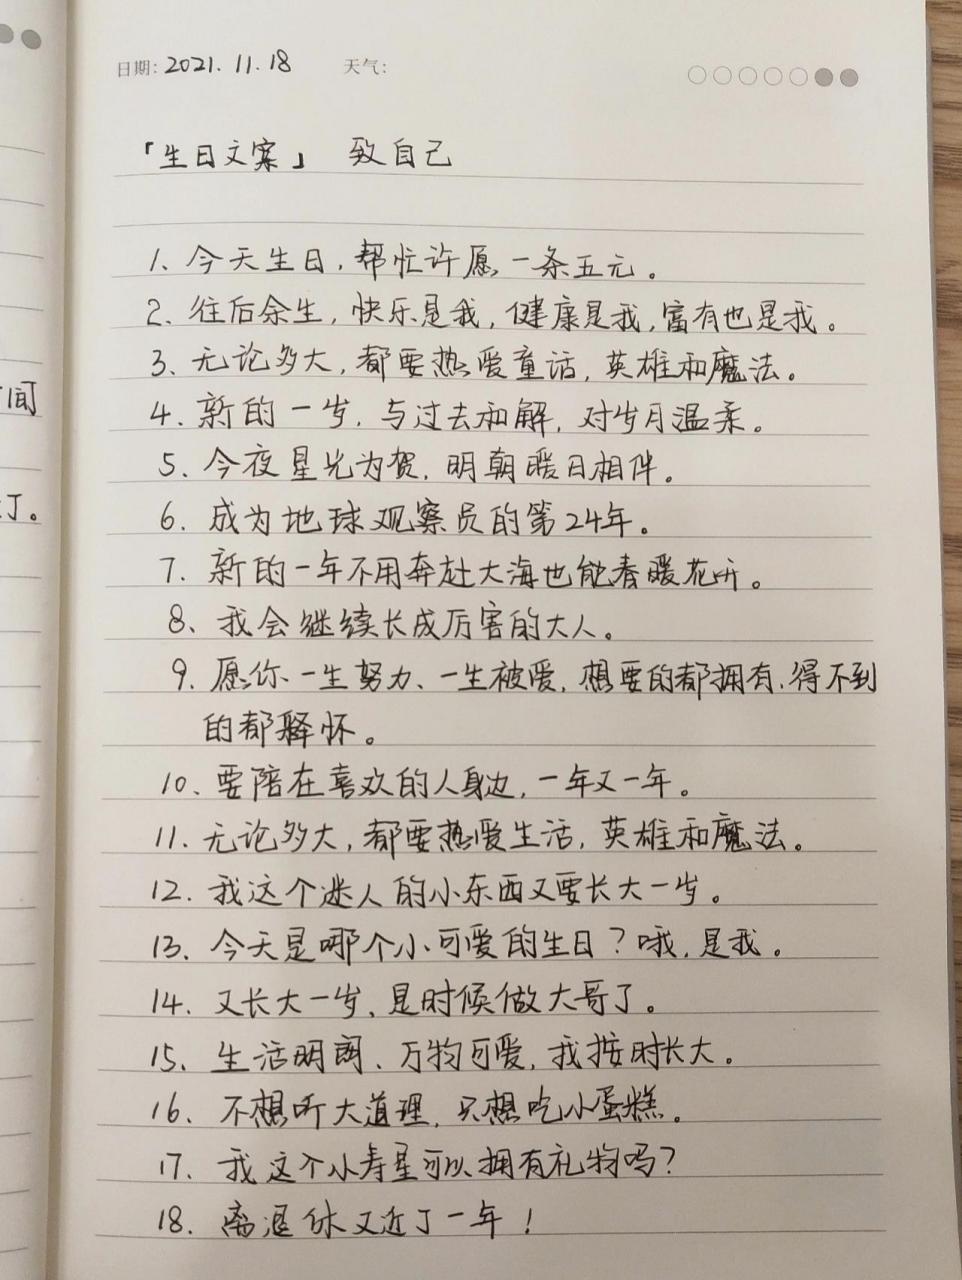 日期: 2021.11.18 天气:
「生日文案」 致自己
1、今天生日,帮忙许愿一条五元。
2、往后余生,快乐是我,健康是我,富有也是我。
3、无论多大,都要热爱童话,英雄和魔法。
4、新的一岁,与过去和解,对岁月温柔。
5、今夜星光为贺,明朝暖日相伴。
6、成为地球观察员的第24年。
7、新的一年不用奔赴大海也能春暖花开。
8、我会继续长成厉害的大人。
9、愿你一生努力、一生被爱,想要的都拥有,得不到
的都释怀。
10、要陪在喜欢的人身边,一年又一年。
11、无论多大,都要热爱生活,英雄和魔法。
12、我这个迷人的小东西又要长大一岁。
13、今天是哪个小可爱的生日?哦,是我。
14、又长大一岁,是时候做大哥了。
15、生活明朗、万物可爱,我按时长大。
16、不想听大道理,只想吃小蛋糕。
17、我这个小寿星可以拥有礼物吗?
18、离退休又近了一年!
间
了。